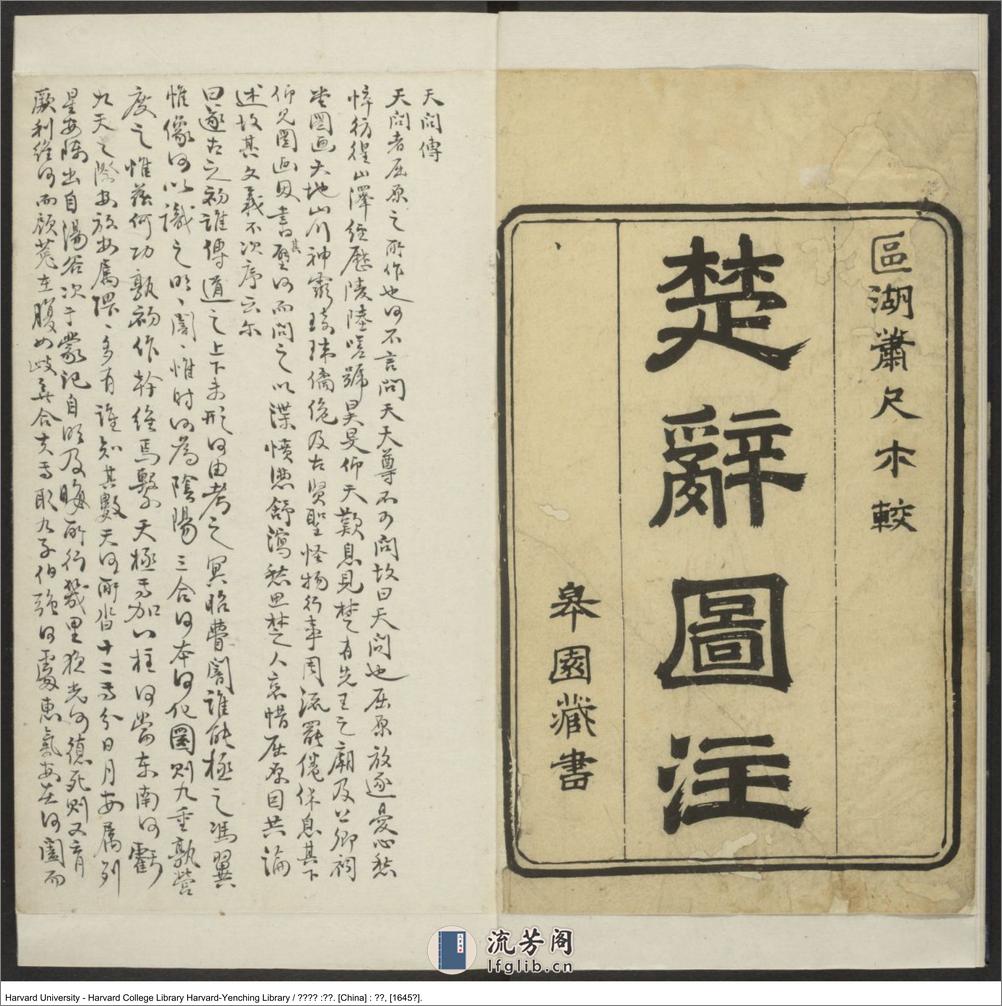 區湖蕭尺木較
楚辭圖注
皋園藏書
天問傳
天問者屈原之所作也何不言問天天尊不可問故曰天問也屈原放逐憂心愁
悴彷徨山澤經歷陵陸嗟號昊旻仰天歎息見楚有先王之廟及公卿祠
堂圖画天地山川神靈琦瑋僑佹及古賢聖怪物行事周流罷倦休息其下
仰見圖画因書其壁何而問之以渫憤懣舒瀉愁思楚人哀惜屈原因共論
述故其文義不次序云尔
曰遂古之初誰傳道之上下未形何由考之冥昭瞢闇誰能極之馮翼
惟像何以識之明、闇、惟时何為陰陽三合何本何化圜則九重孰營
度之惟茲何功孰初作斡維焉繫天極焉加八柱何當东南何虧
九天之際安放安屬隅、多有誰知其數天何所沓十二焉分日月安屬列
星安陳出自湯谷次于蒙汜自明及晦所行幾里夜光何德死則又育
厥利維何而顧菟在腹女岐无合夫焉取九子伯强何處惠氣安在何闔而
流芳阁
lfglib.cn
Harvard University - Harvard College Library Harvard-Yenching Library / ???? :??. [China] : ??, [1645?].